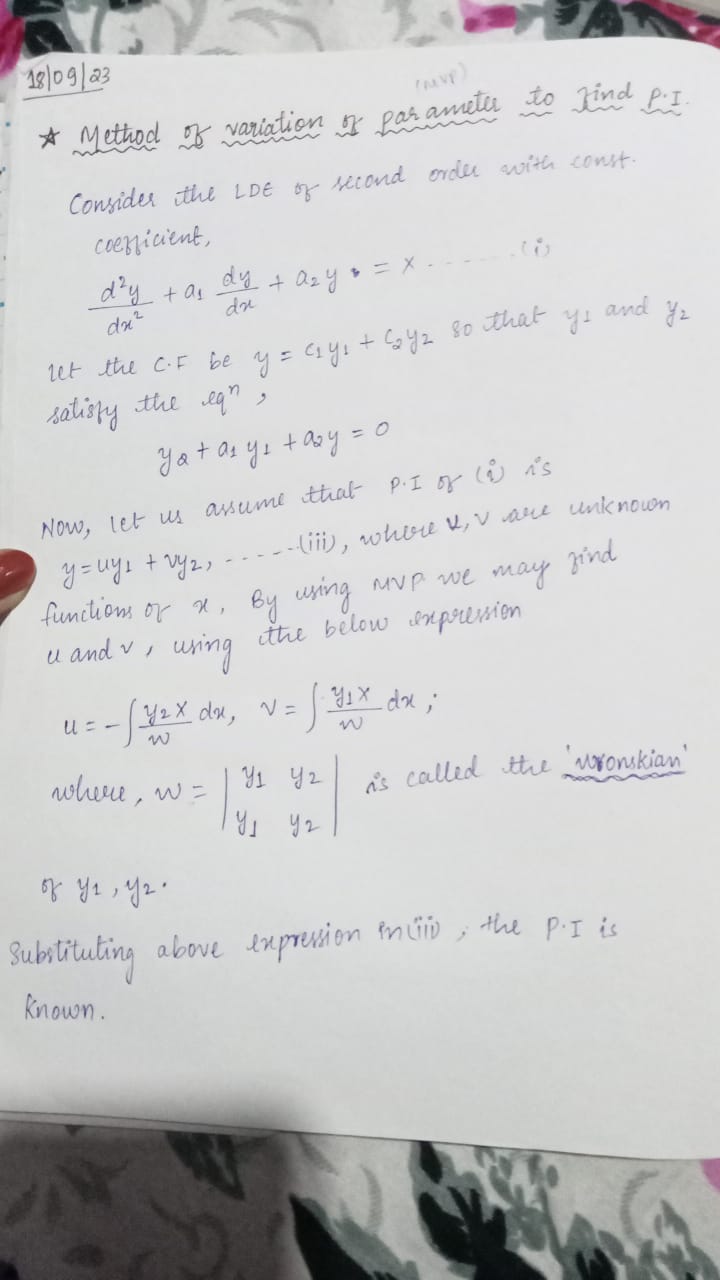 18/09/23
(MVP)
* Method of variation of parameter to find P.I.
Consider the LDE of second order with const.
coefficient,
d²y/dx² + a₁ dy/dx + a₂y = X - - - - - - (i)
let the C.F be y = c₁y₁ + c₂y₂ so that y₁ and y₂
satisfy the eqⁿ,
y₂ + a₁y₁ + a₂y = 0
Now, let us assume that P.I of (i) is
y = uy₁ + vy₂, - - - - - (iii), where u, v are unknown
functions of x. By using MVP we may find
u and v, using the below expression
u = -∫ y₂X/W dx, v = ∫ y₁X/W dx ;
where, W = | y₁ y₂ | is called the 'wronskian'
| y₁ y₂ |
of y₁, y₂.
Substituting above expression in (iii), the P.I is
known.